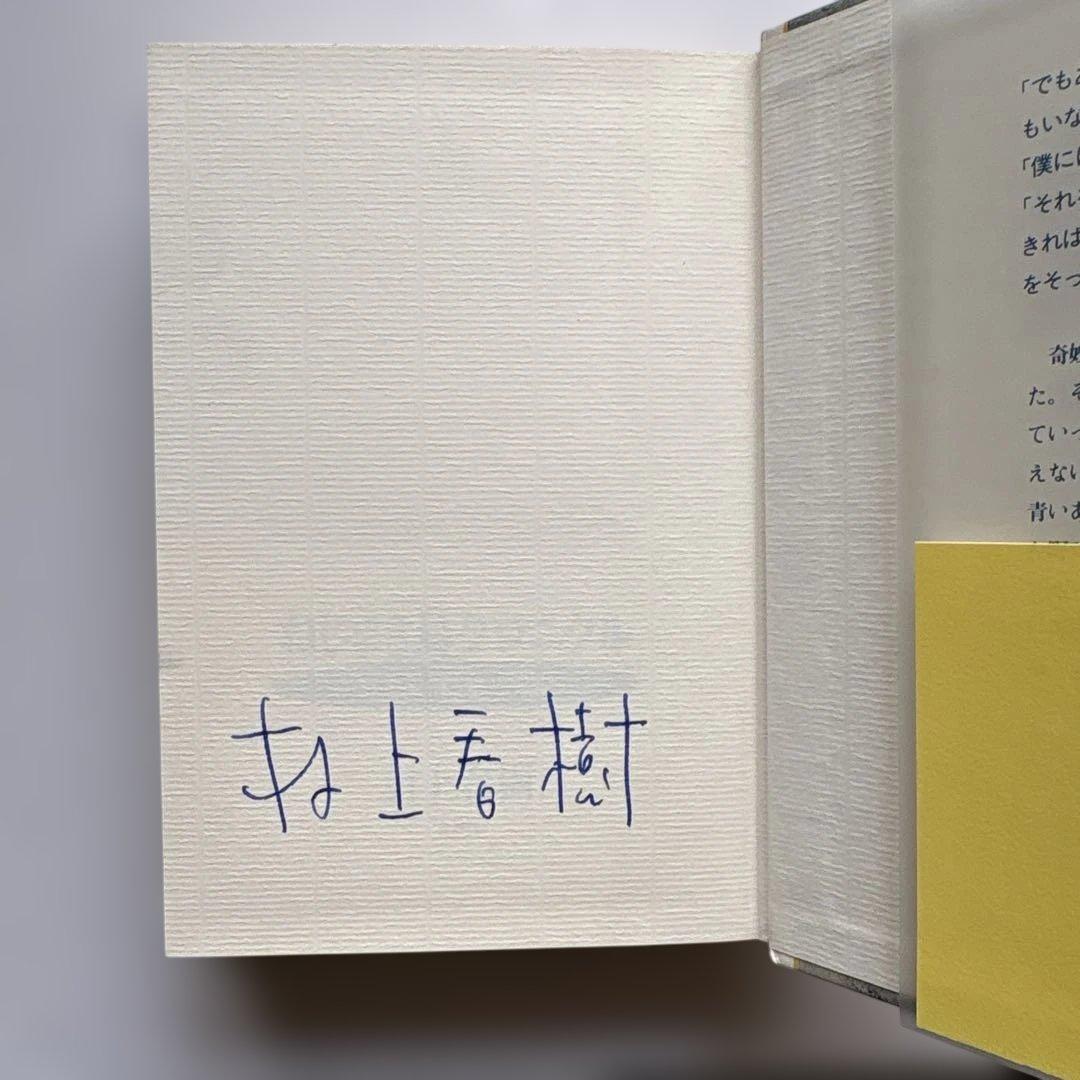 村上春樹
「でも
もいな
「僕に
「それ
きれは
をそっ
奇妙
た。そ
ていっ
えない
青いあ